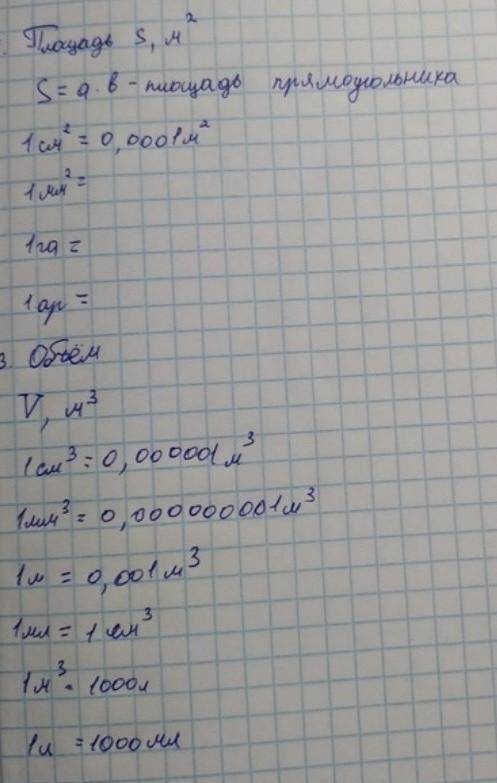 Площадь S, м²
S = a · b - площадь прямоугольника
1 см² = 0,0001 м²
1 мм² =
1 га =
1 ар =
3. Объём
V, м³
1 см³ = 0,000001 м³
1 мм³ = 0,000000001 м³
1 л = 0,001 м³
1 мл = 1 см³
1 м³ = 1000 л
1 л = 1000 мл